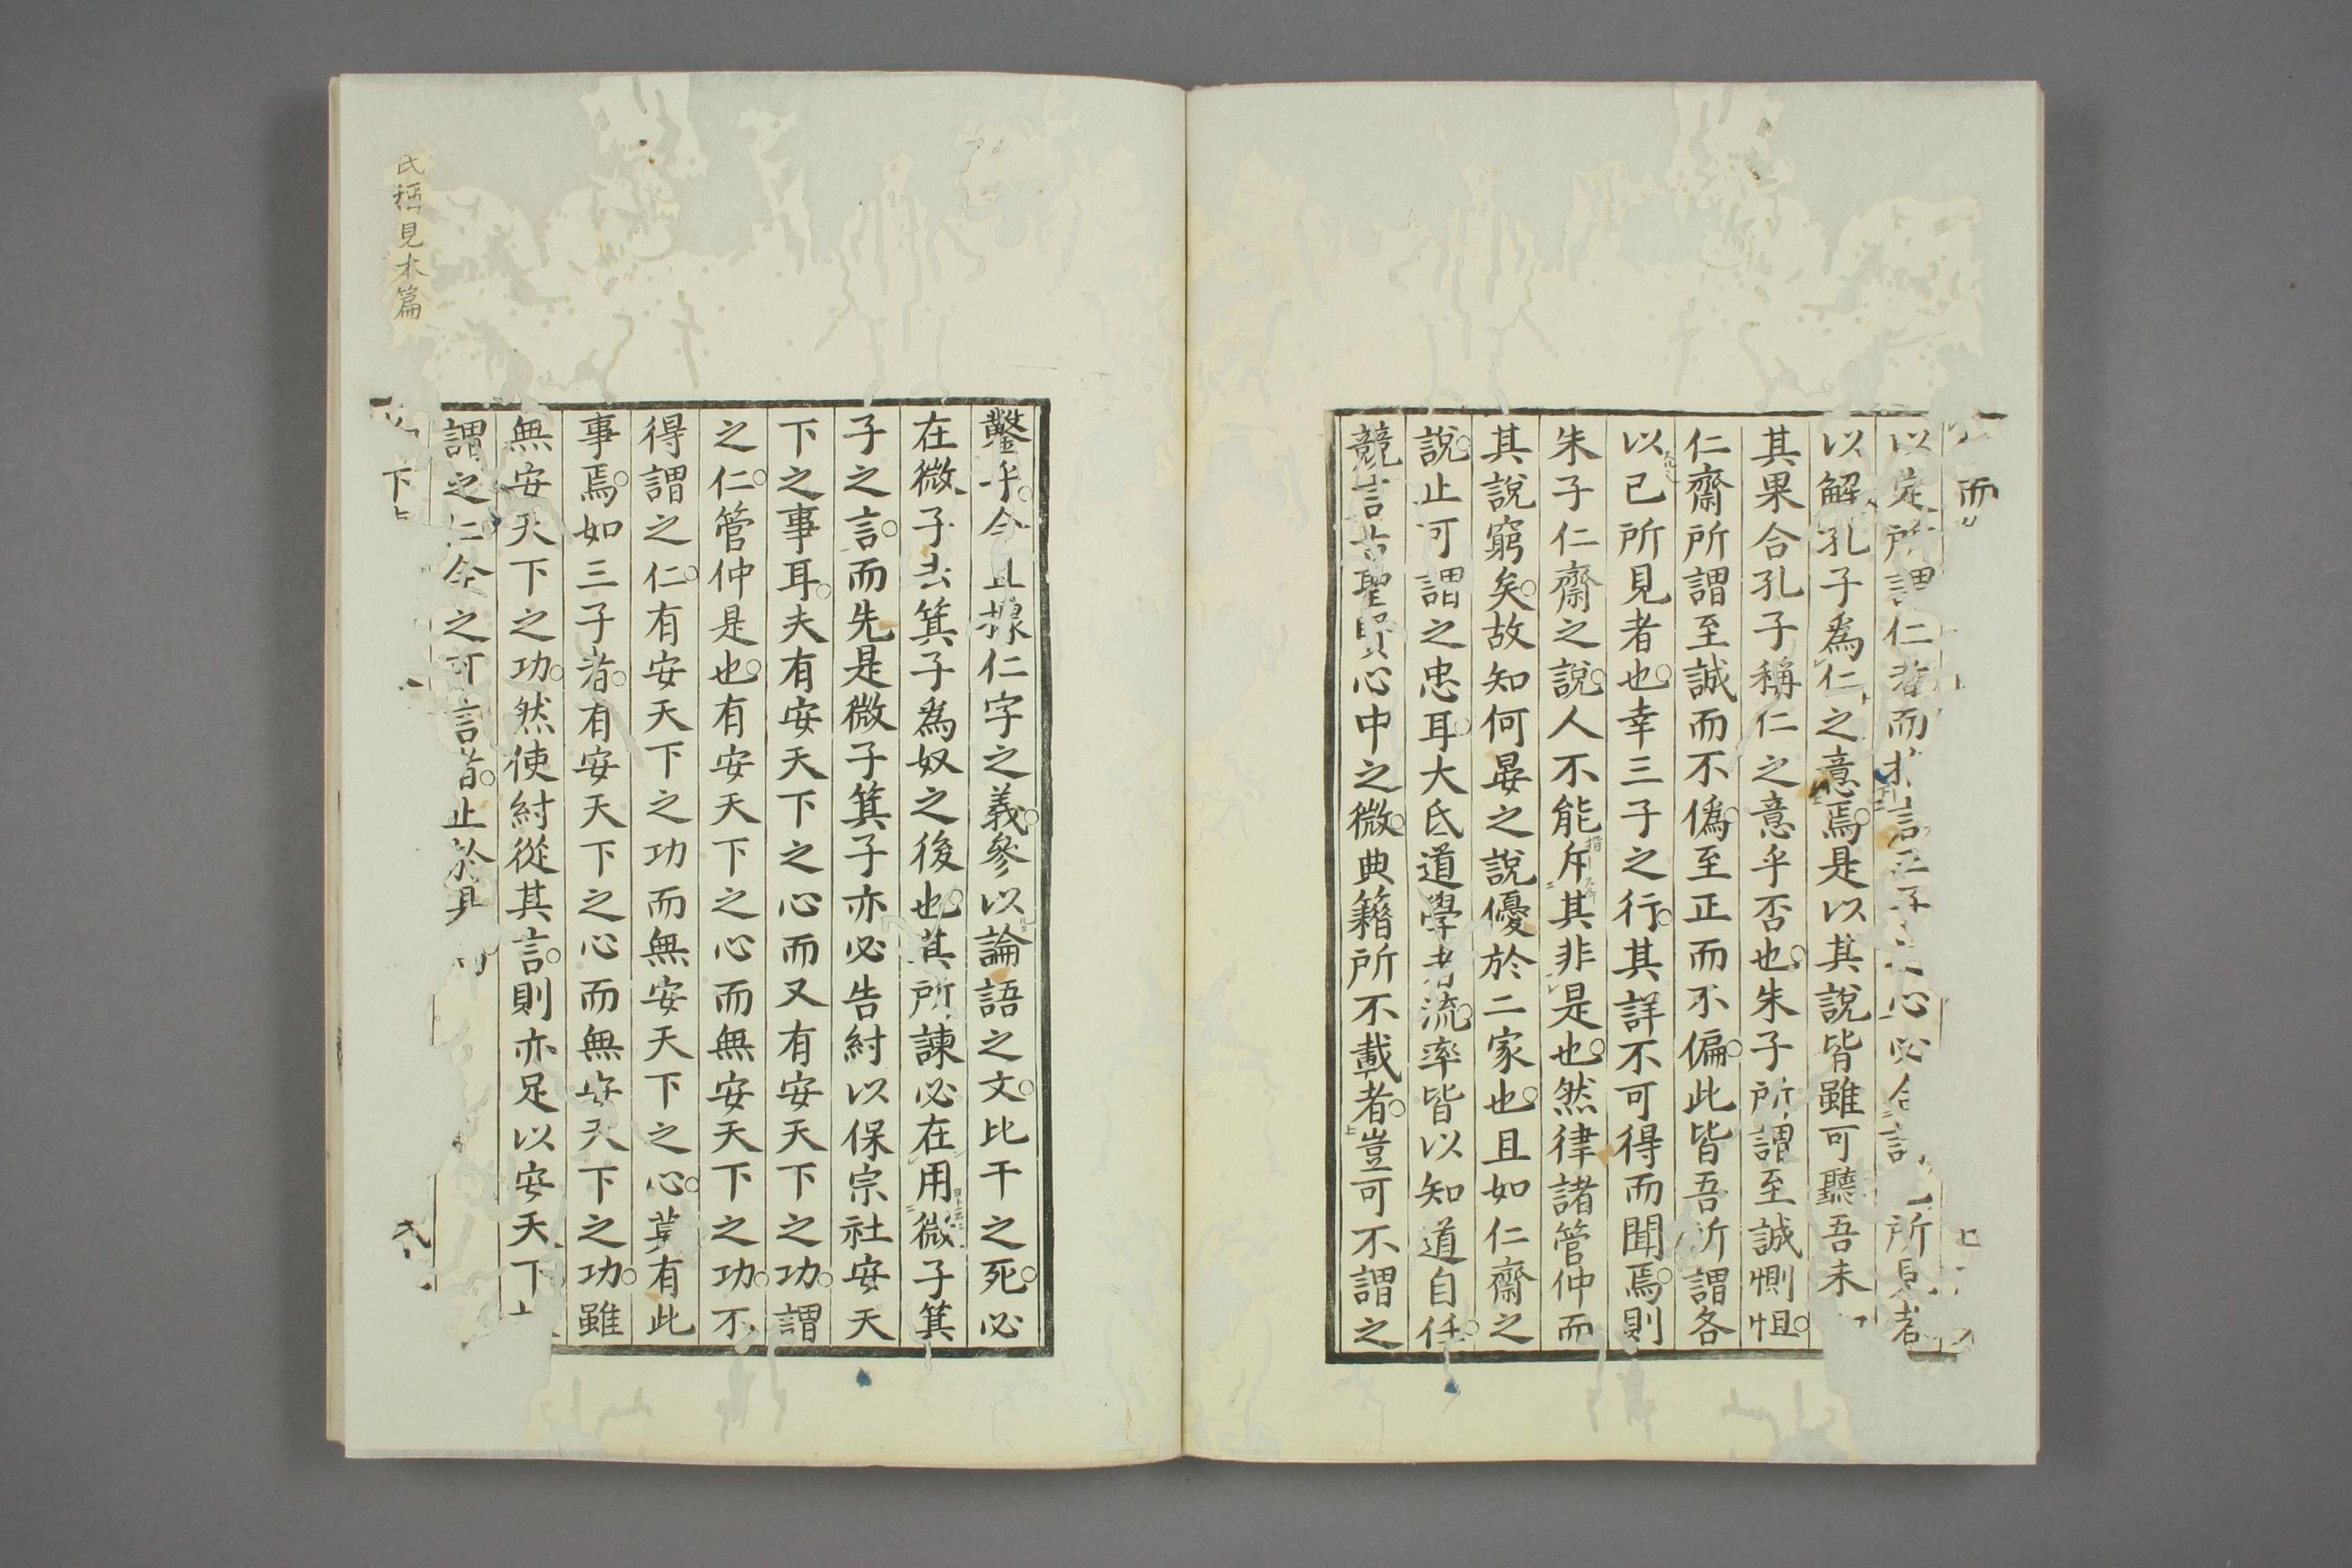 而
以定所謂仁者而求言三子之心必合己所見者
以解孔子爲仁之意焉是以其說皆雖可聽吾未
其果合孔子稱仁之意乎否也朱子所謂至誠惻怛
仁齋所謂至誠而不僞至正而不偏此皆吾所謂各
以己所見者也幸三子之行其詳不可得而聞焉則
朱子仁齋之說人不能斥其非是也然律諸管仲而
其說窮矣故知何晏之說優於二家也且如仁齋之
說止可謂之忠耳大氐道學者流率皆以知道自任
競言古聖賢心中之微典籍所不載者豈可不謂之
鑿乎今且據仁字之義參以論語之文比干之死必
在微子去箕子爲奴之後也其所諫必在用微子箕
子之言而先是微子箕子亦必告紂以保宗社安天
下之事耳夫有安天下之心而又有安天下之功謂
之仁管仲是也有安天下之心而無安天下之功不
得謂之仁有安天下之功而無安天下之心莫有此
事焉如三子者有安天下之心而無安天下之功雖
無安天下之功然使紂從其言則亦足以安天下
謂之仁今之可言者止於其
下
氏稱見本篇